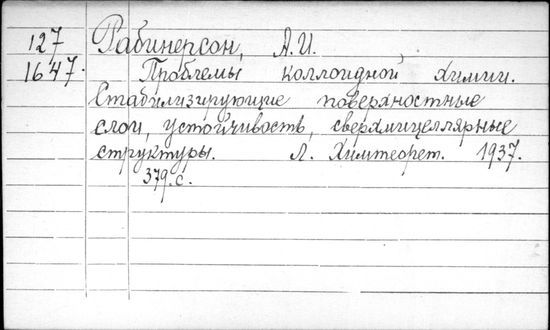 127 Рабинерсон, А.И.
1647. Проблемы коллоидной химии.
Стабилизирующие поверхностные
слои, устойчивость, сверхмицеллярные
структуры. Л. Химтеорет. 1937.
379.с.